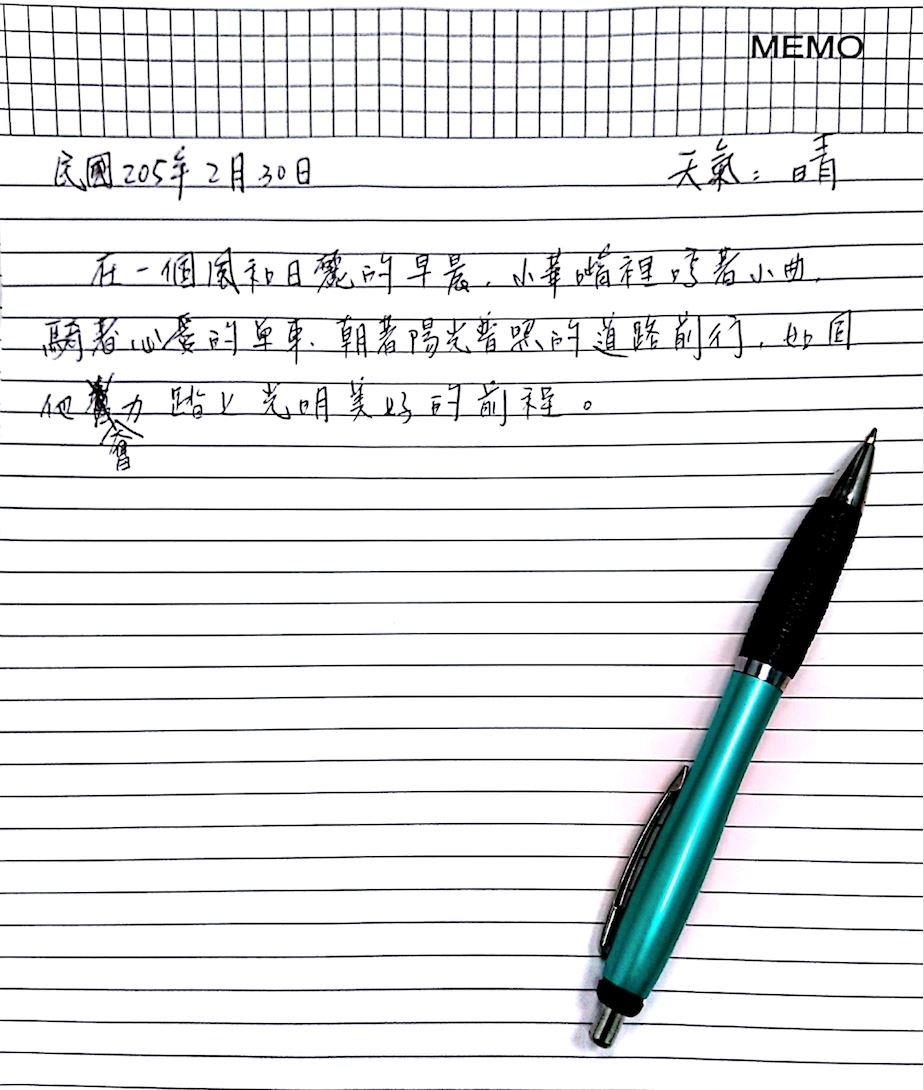 MEMO
民國205年2月30日 天氣：晴
在一個風和日麗的早晨，小華嘴裡哼著小曲，
騎著心愛的單車，朝著陽光普照的道路前行，如同
他奮力踏上光明美好的前程。